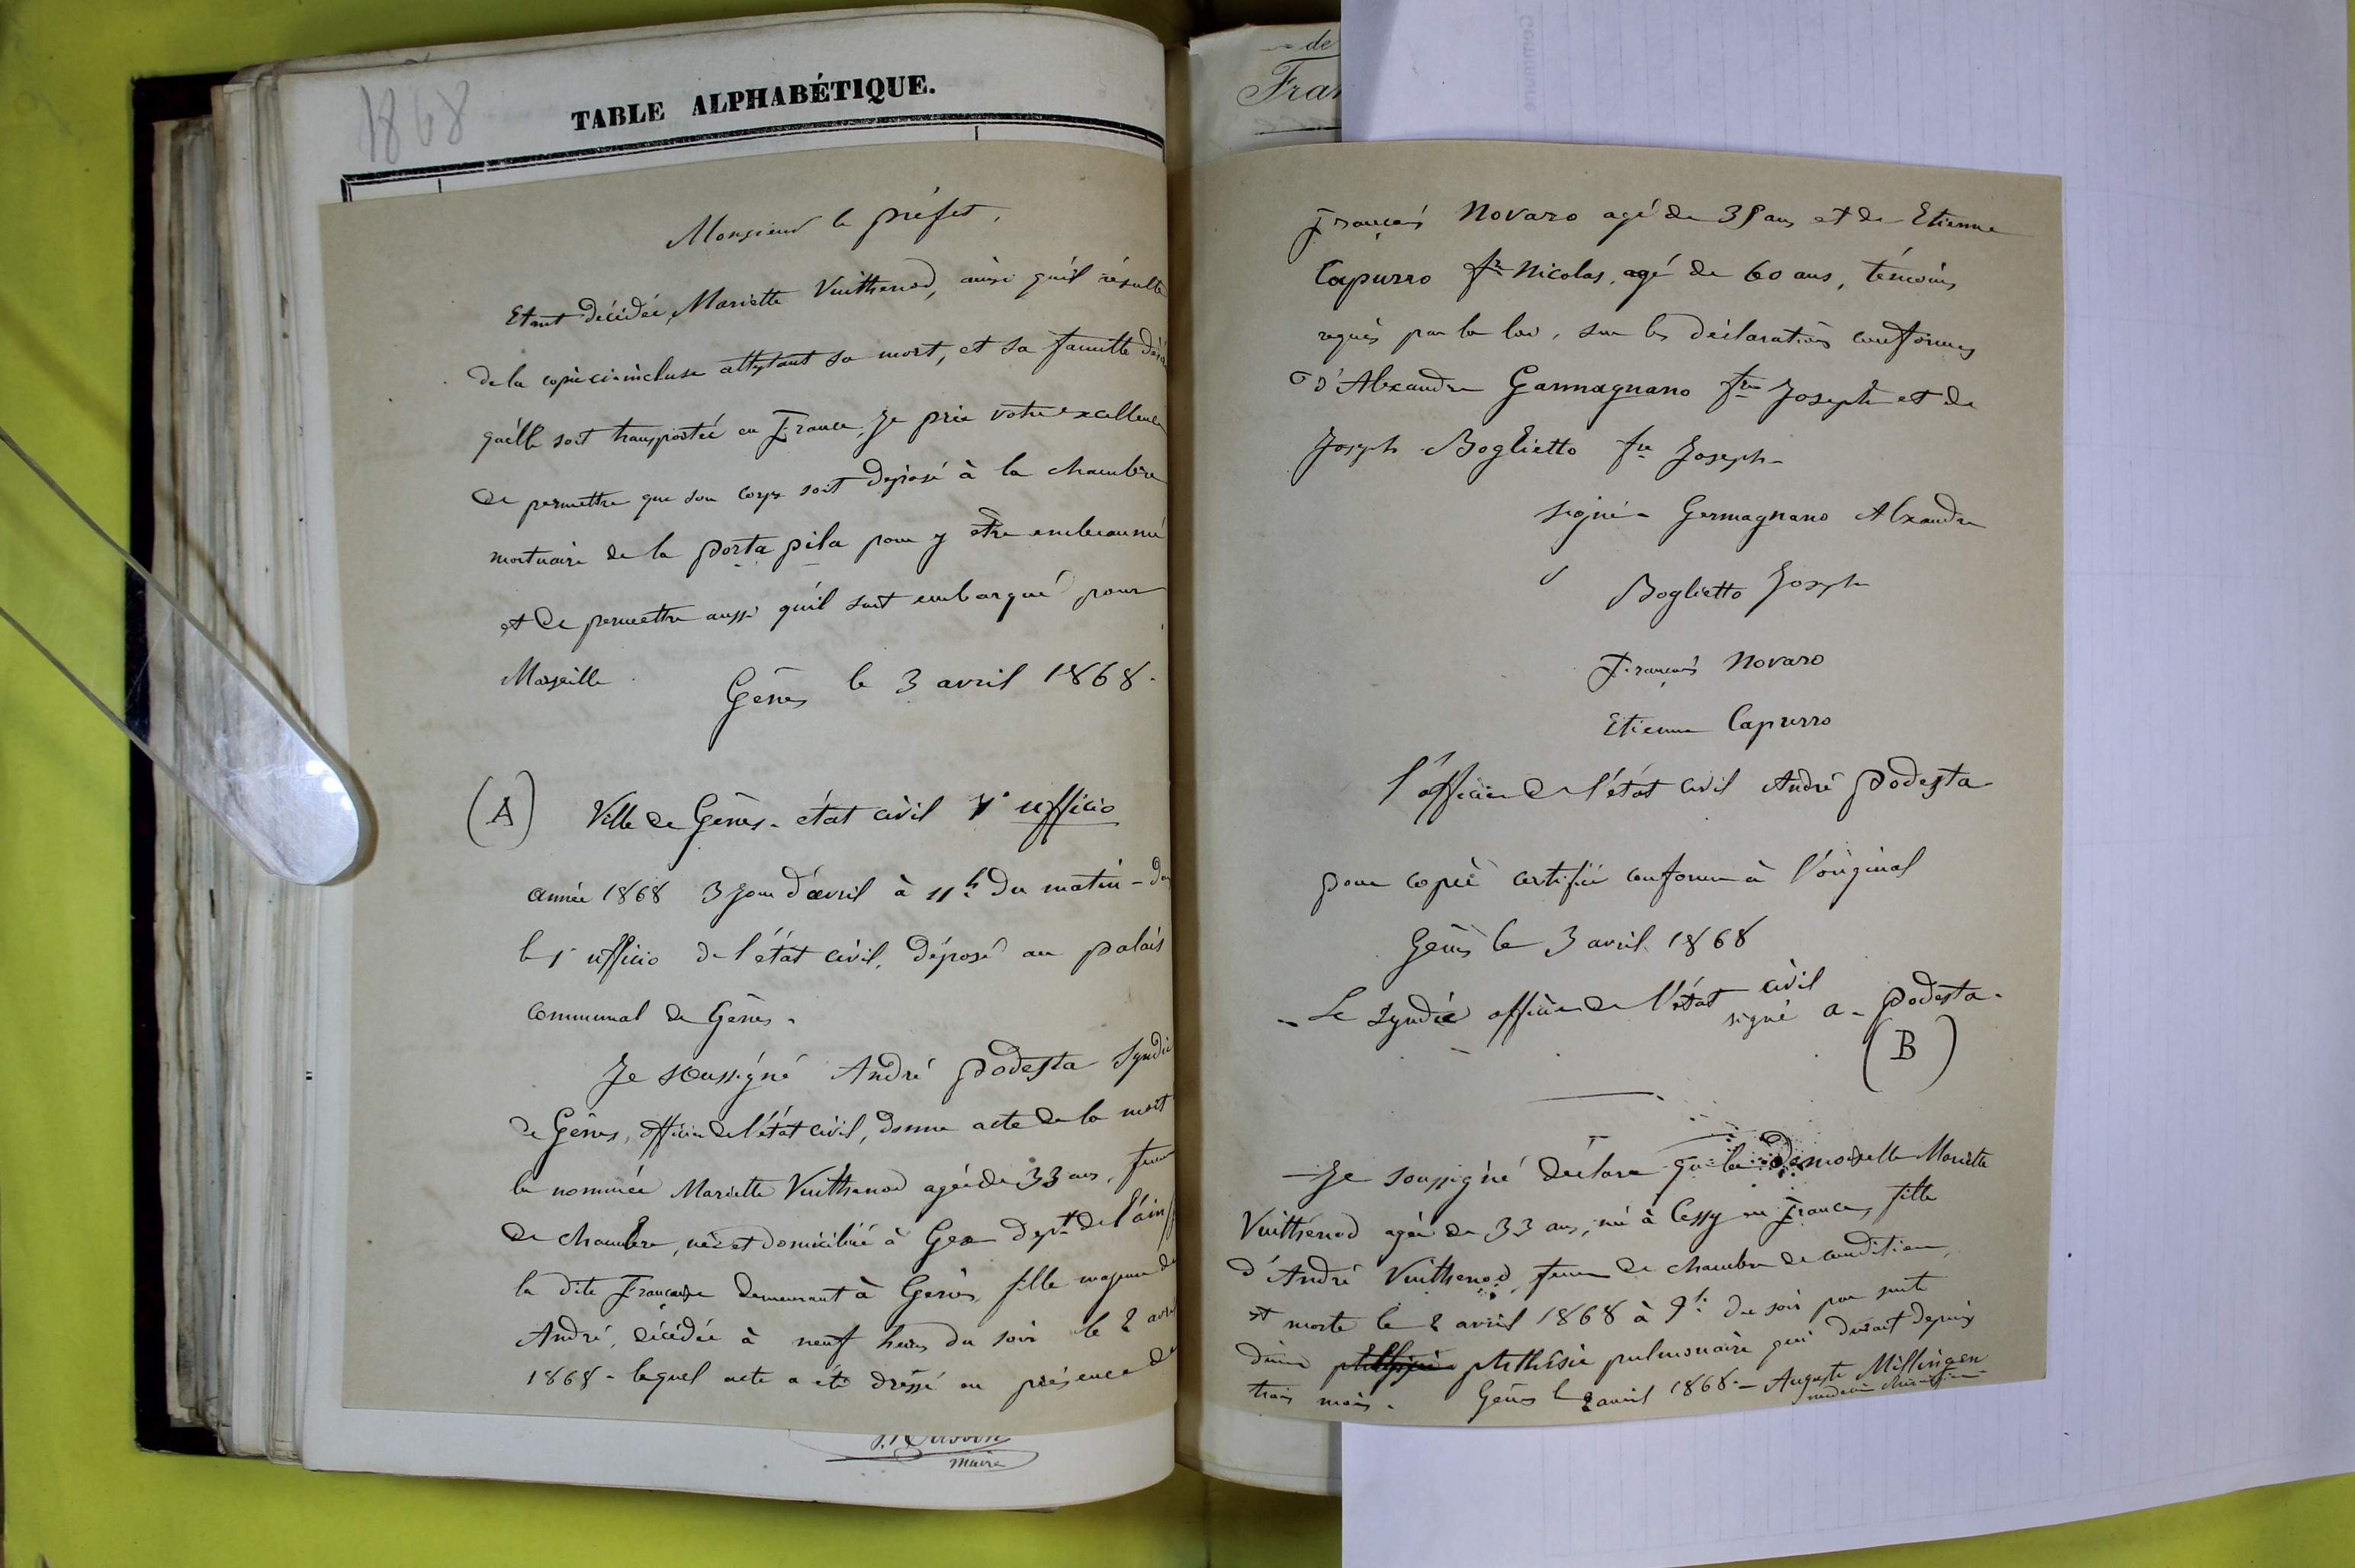 1868
TABLE ALPHABÉTIQUE.
Monsieur le préfet,
Etant décidée, Mariette Vuithenod, ainsi qu'il résulte
de la copie ci-incluse attestant sa mort, et sa famille
qu'elle soit transportée en France, Je prie votre excellence
de permettre que son corps soit déposé à la chambre
mortuaire de la porta pila pour y être embeaumé
et de permettre aussi qu'il soit embarqué pour
Marseille.
Gênes le 3 avril 1868.
(A) Ville de Gênes - état civil 1° ufficio
année 1868 3 jour d'avril à 11h du matin - 
le 1° ufficio de l'état civil, déposé au palais
communal de Gênes.
Je soussigné André podesta Syndic
de Gênes, officier de l'état civil, donne acte de la mort
la nommée Mariette Vuithenod agée de 33 ans, femme
de chambre, née et domiciliée à Gex dept de l'ain
la dite Française demeurant à Gênes, fille majeure de
André, décédée à neuf heures du soir le 2 avril
1868 - lequel acte a été dressé en présence de
maire
de
Fran
François Novaro agé de 38 ans et de Etienne
Capurro fre Nicolas, agé de 60 ans, témoins
requis par la loi, sur les déclarations conformes
d'Alexandre Garmagnano fre Joseph et de
Joseph Boglietto fre Joseph -
signé - Germagnano Alexandre
Boglietto Joseph
François Novaro
Etienne Capurro
l'officier de l'état civil André podesta -
pour copie certifiée conforme à l'original
Gênes le 3 avril 1868
- Le Syndic officier de l'état civil signé a - podesta -
(B)
- Je soussigné déclare que la demoiselle Mariette
Vuithenod agée de 33 ans, né à Cessy en France, fille
d'André Vuithenod, femme de chambre de condition,
est morte le 2 avril 1868 à 9h du soir par suite
d'une phthisie pulmonaire qui durait depuis
trois mois. Gênes le 2 avril 1868 - Auguste Millingen
medecin chirurgien -
Commune